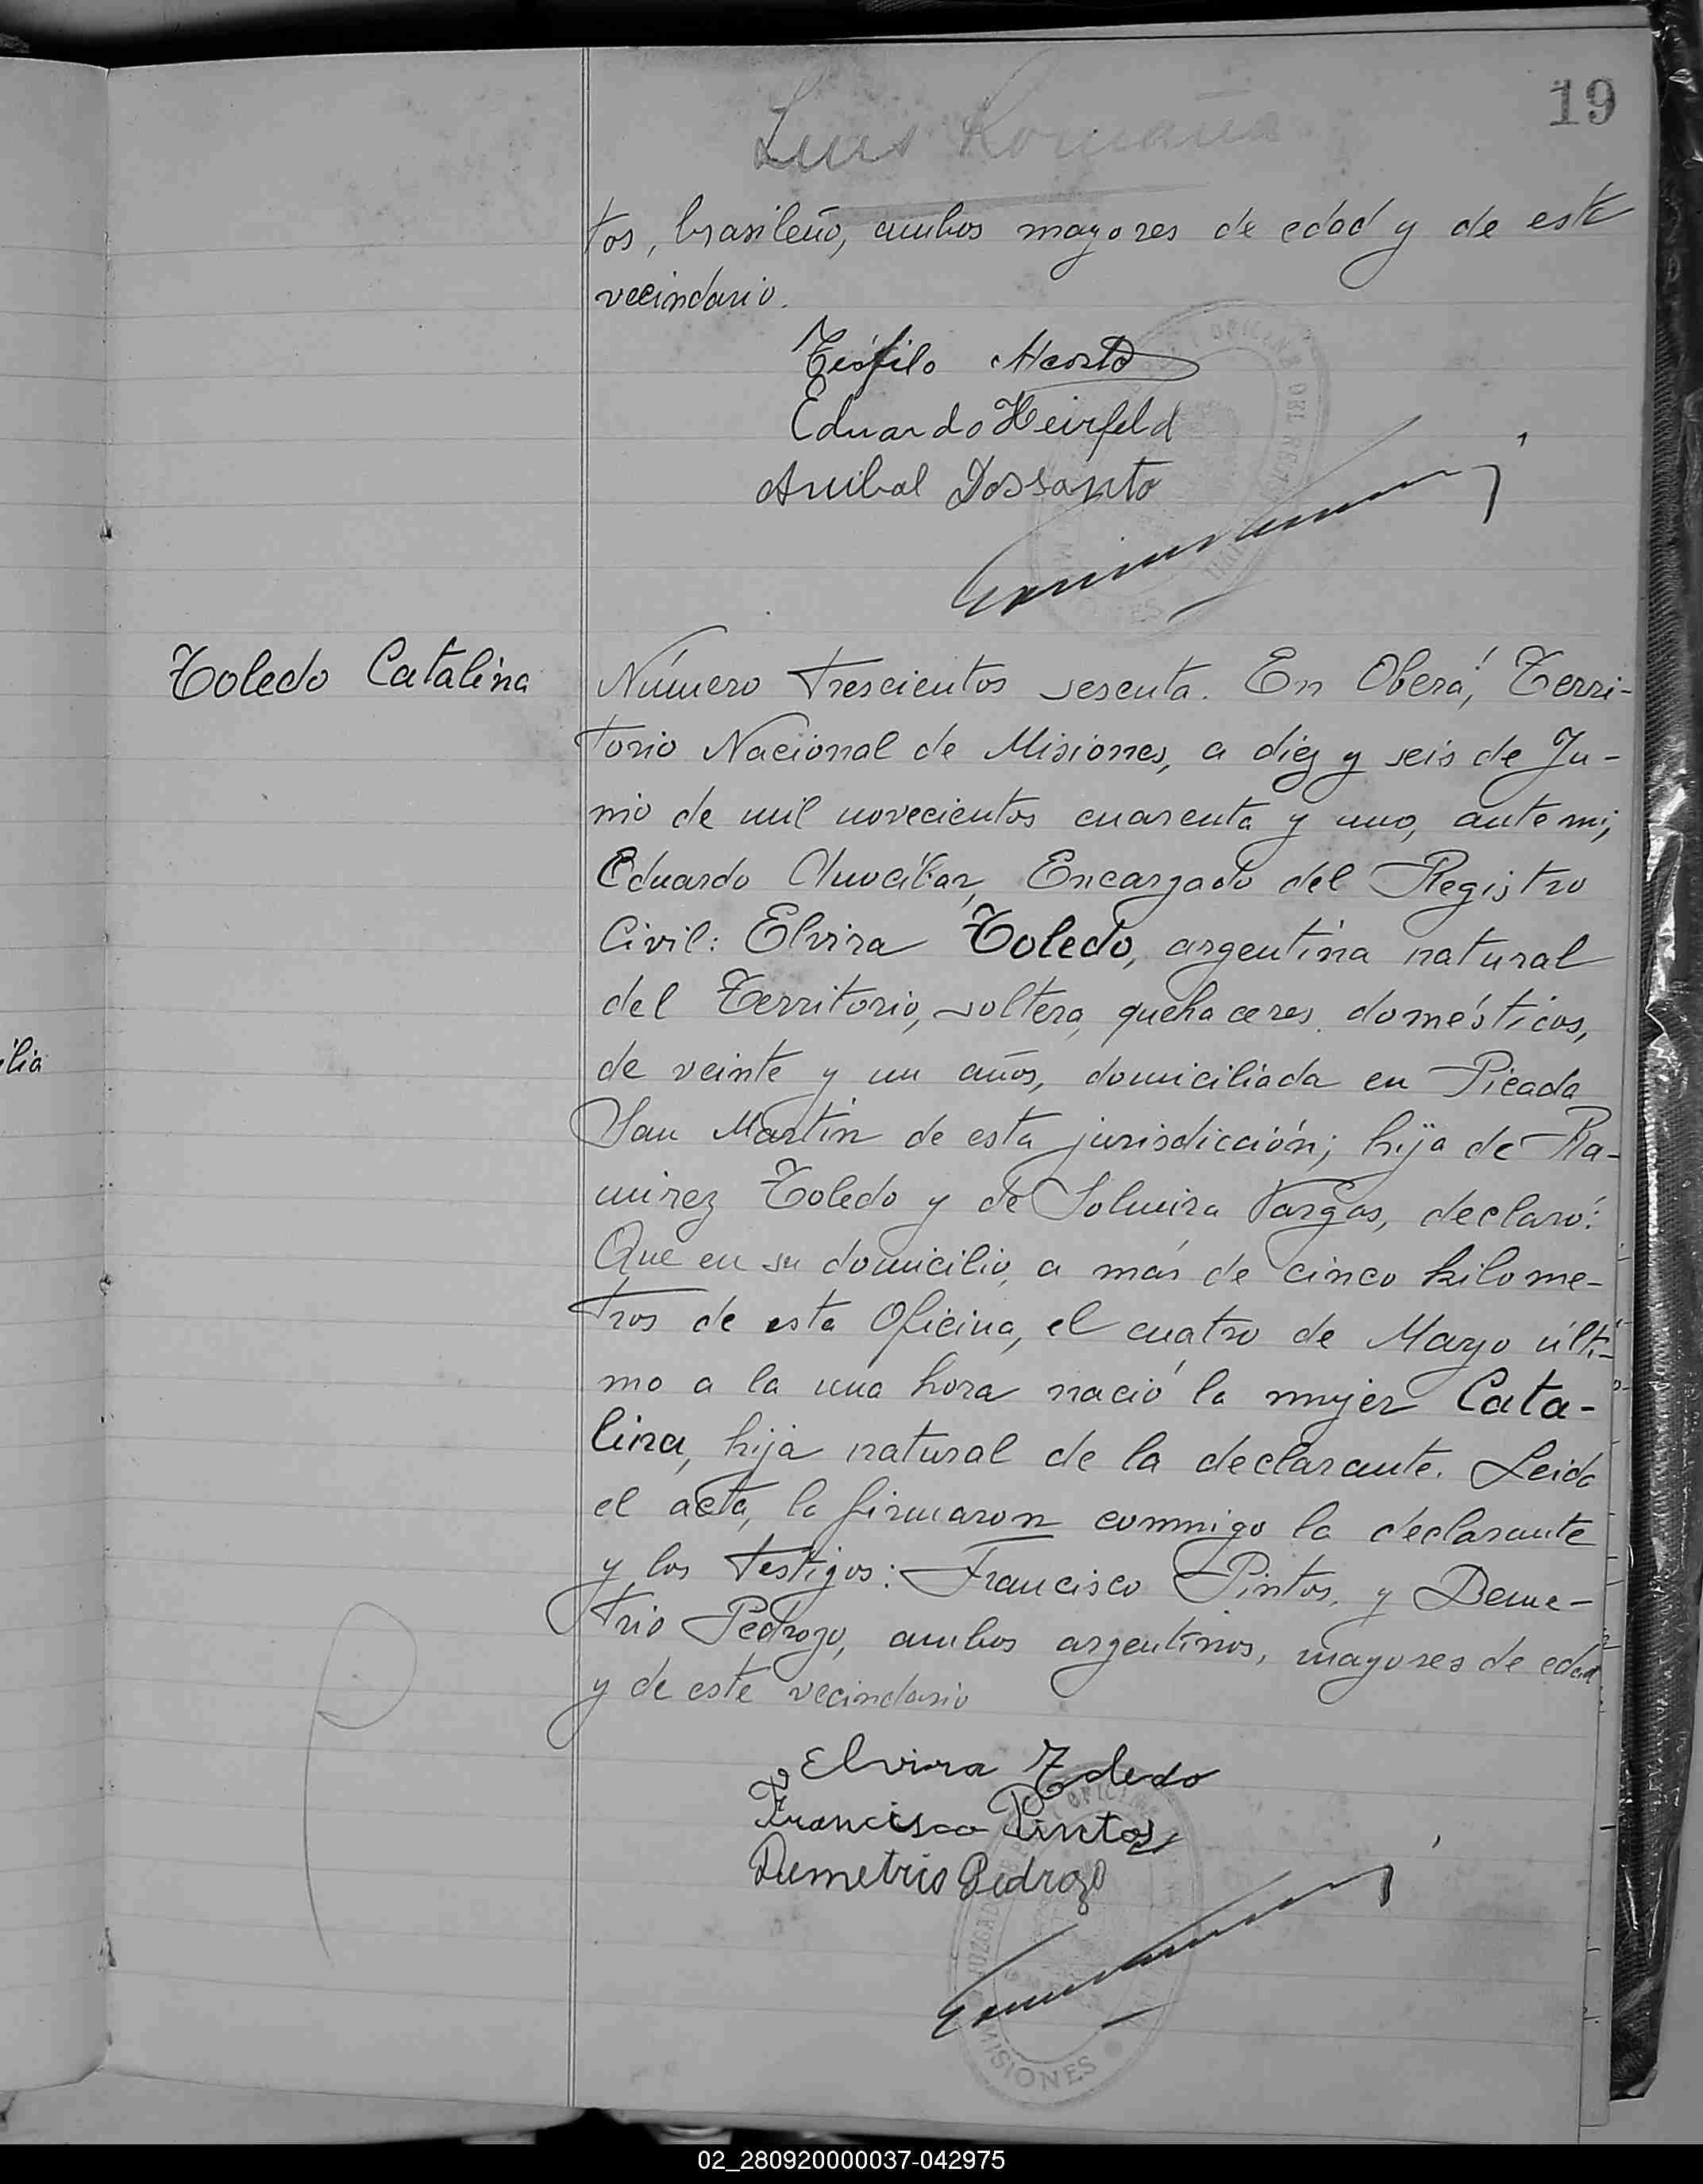 19
Luis Romaña
tos, brasileño, ambos mayores de edad y de este
vecindario.
Teófilo Acosta
Eduardo Heirfeld
Anibal Dossanto
Toledo Catalina
Número trescientos sesenta. En Oberá, Terri-
torio Nacional de Misiones, a diez y seis de Ju-
nio de mil novecientos cuarenta y uno, ante mi,
Eduardo Encargado del Registro
Civil: Elvira Toledo, argentina natural
del Territorio, soltera, quehaceres domésticos,
de veinte y un años, domiciliada en Picada
ilia
San Martín de esta jurisdicción; hija de Ra-
mirez Toledo y de Solmira Vargas, declaró:
Que en su domicilio, a más de cinco kilome-
tros de esta Oficina, el cuatro de Mayo últi-
mo a la una hora nació la mujer Cata-
lina, hija natural de la declarante. Leida
el acta, la firmaron conmigo la declarante
y los testigos: Francisco Pintos, y Deme-
trio Pedrozo, ambos argentinos, mayores de edad
y de este vecindario
Elvira Toledo
Francisco Pintos
Demetrio Pedrozo
MISIONES
02_280920000037-042975